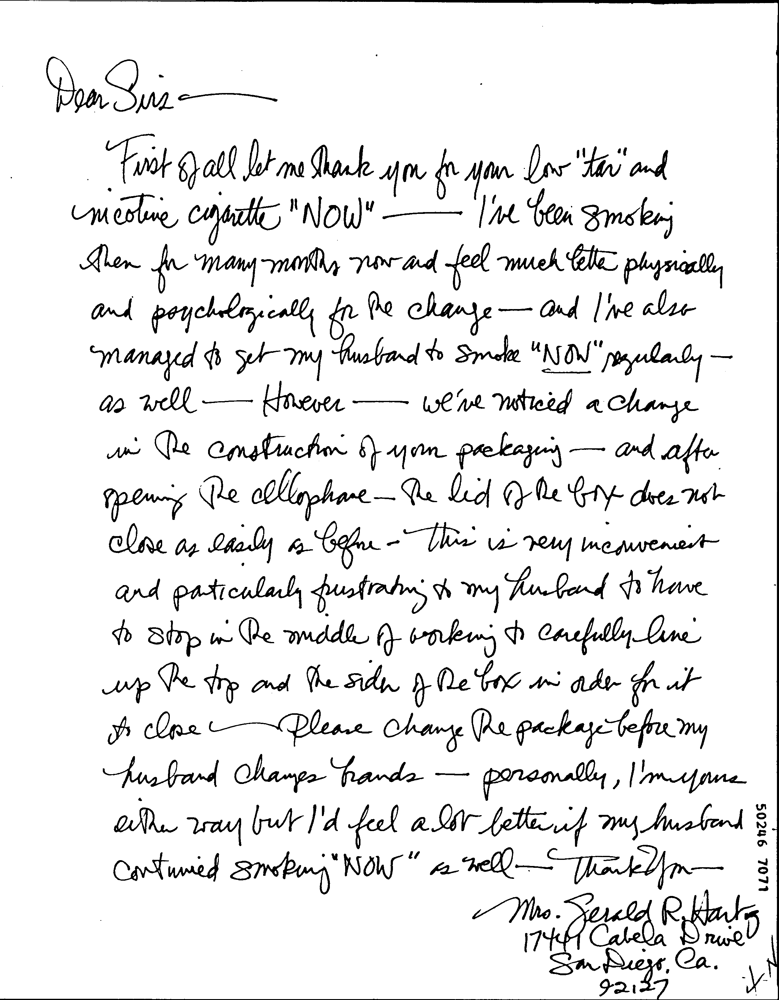 Dear Sirs —
First of all let me thank you for your low "tar" and
nicotine cigarette "NOW" — I've been smoking
them for many months now and feel much better physically
and psychologically for the change — and I've also
managed to get my husband to smoke "NOW" regularly —
as well — However — we've noticed a change
in the construction of your packaging — and after
opening the cellophane — the lid of the box does not
close as easily as before — This is very inconvenient
and paticularly frustrating to my husband to have
to stop in the middle of working to carefully line
up the top and the sides of the box in order for it
to close — Please change the package before my
husband changes brands — personally, I'm yours
either way but I'd feel a lot better if my husband
continued smoking "NOW" as well — Thank You —
Mrs. Gerald R. Hartz
17441 Cabela Drive
San Diego, Ca.
92127
50246 7071